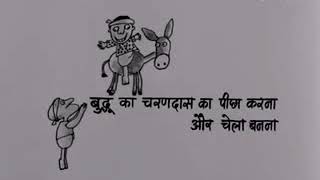 बुद्धू का चरणदास का पीछा करना
और चेला बनना